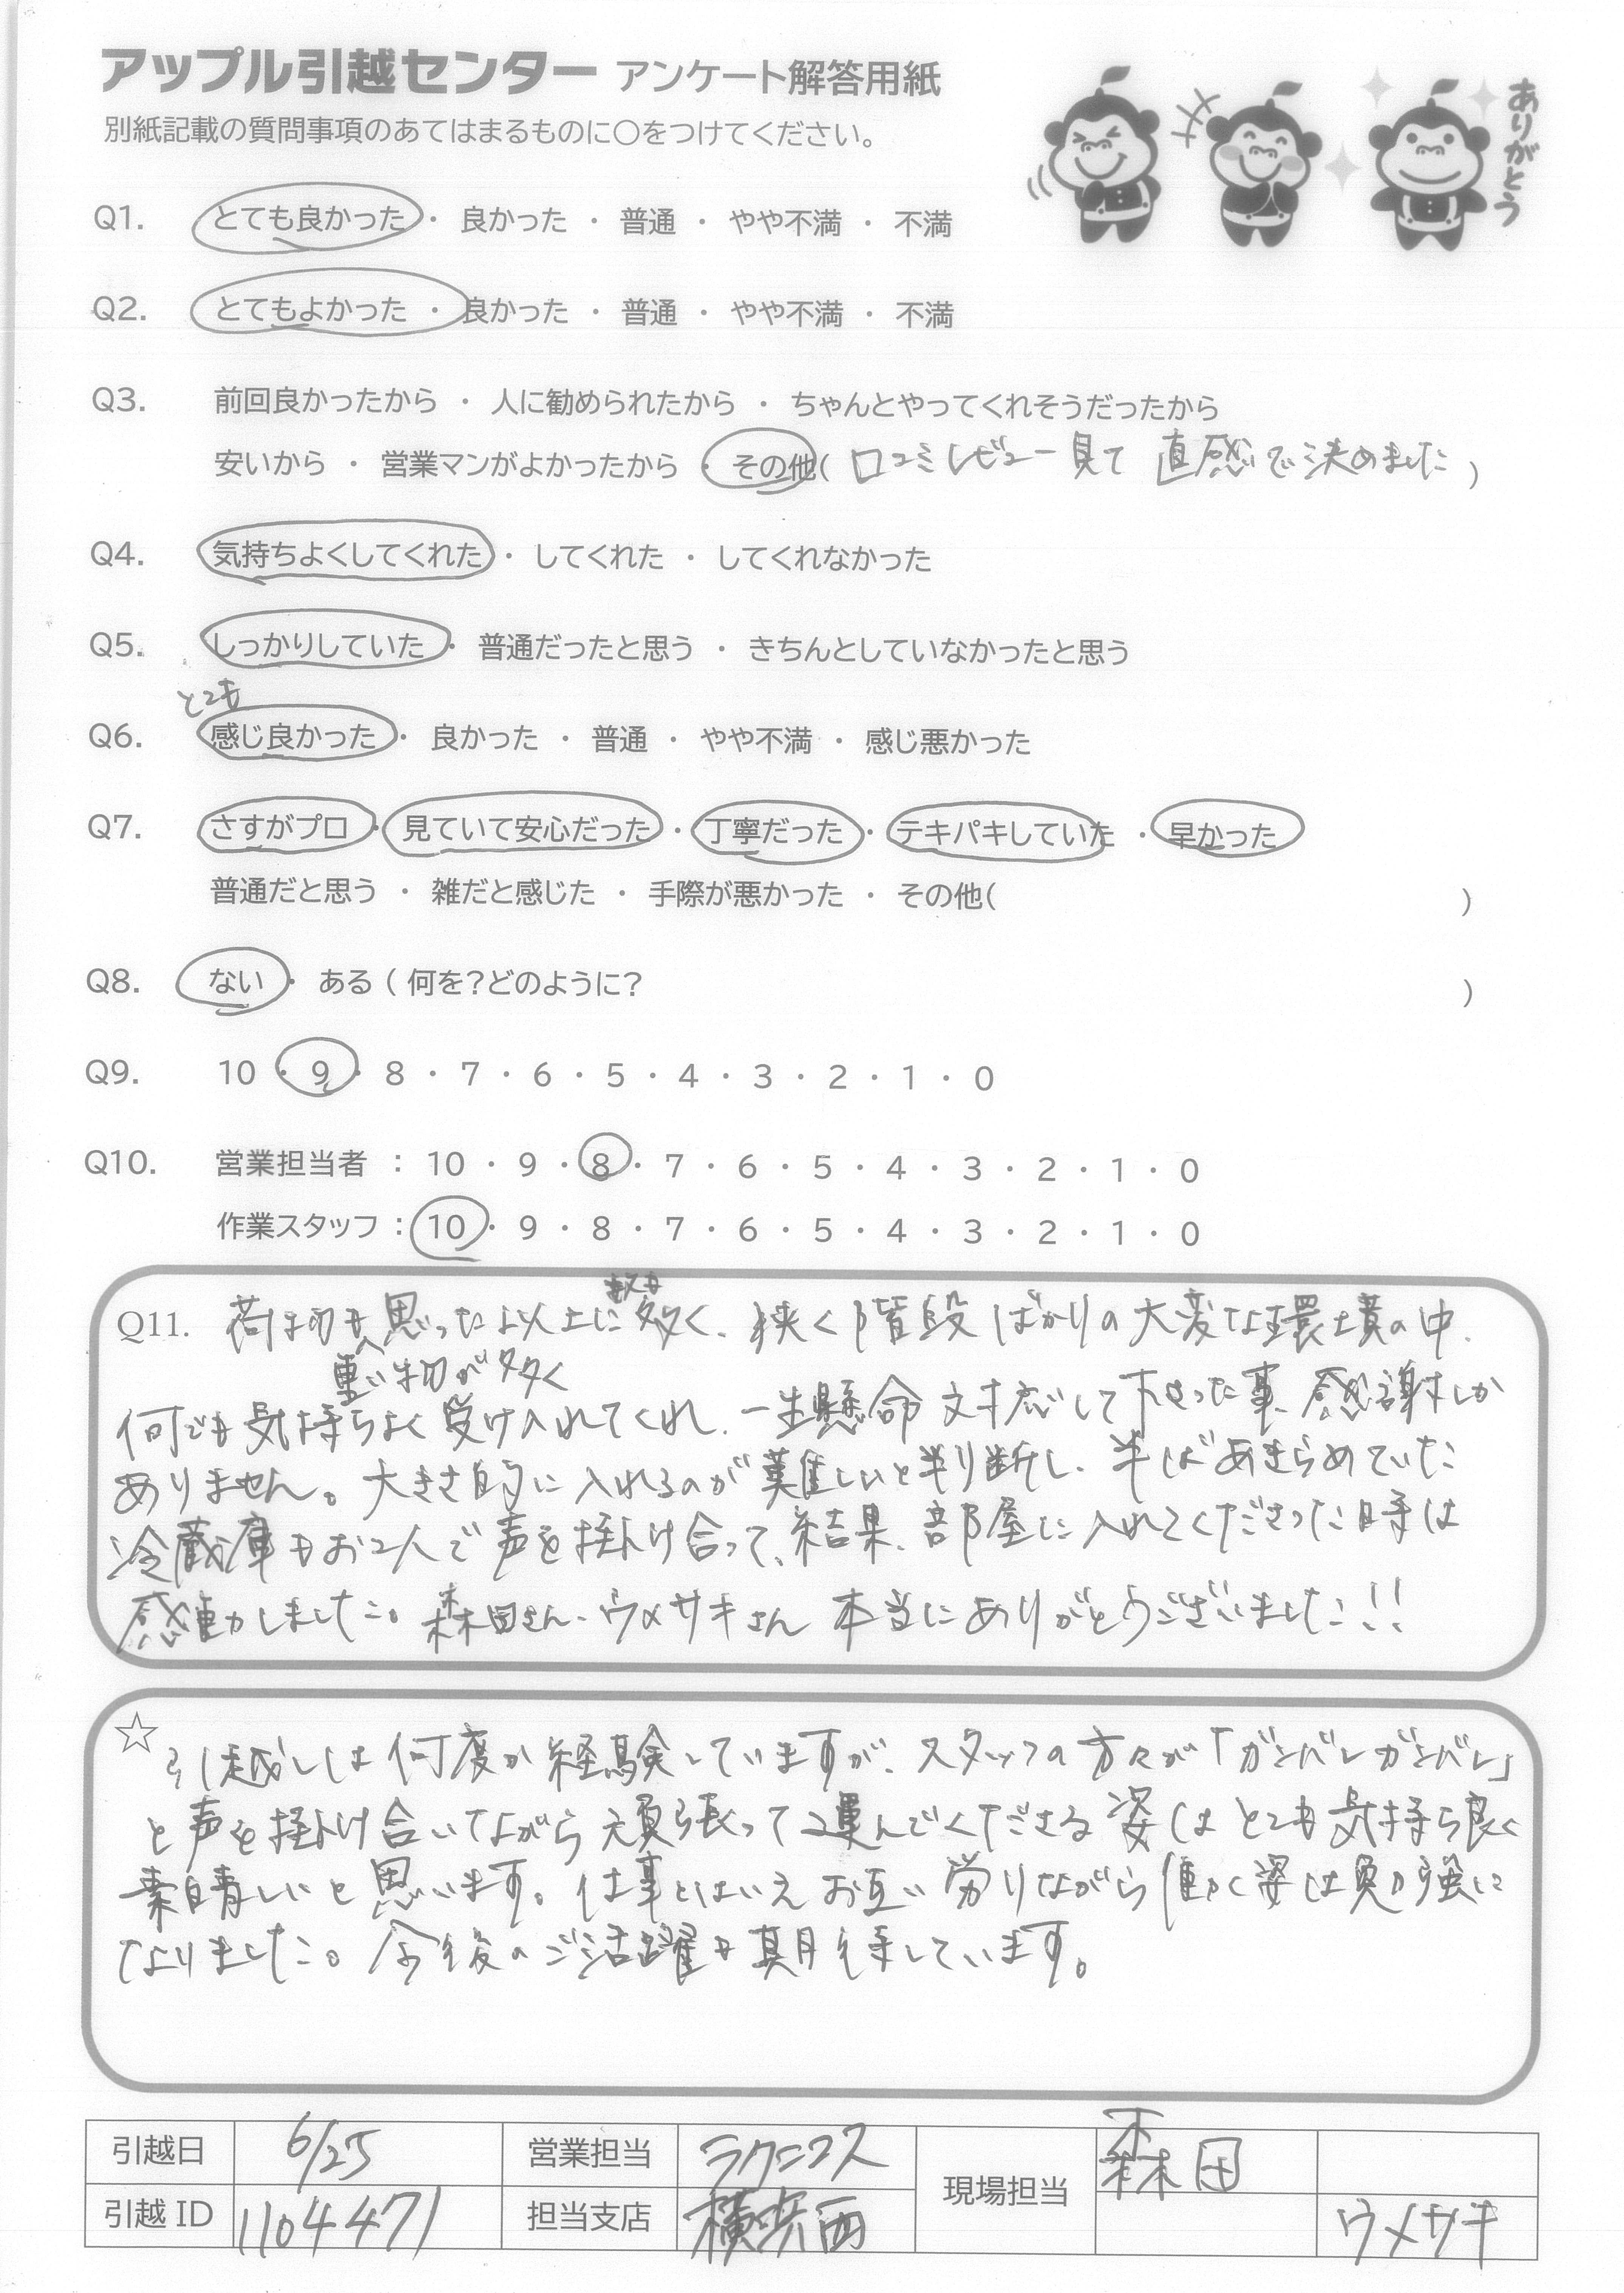 アップル引越センター アンケート解答用紙
別紙記載の質問事項のあてはまるものに○をつけてください。
ありがとう
Q1. とても良かった ・ 良かった ・ 普通 ・ やや不満 ・ 不満
Q2. とてもよかった ・ 良かった ・ 普通 ・ やや不満 ・ 不満
Q3. 前回良かったから ・ 人に勧められたから ・ ちゃんとやってくれそうだったから
安いから ・ 営業マンがよかったから ・ その他( 口コミレビュー見て 直感で決めました )
Q4. 気持ちよくしてくれた ・ してくれた ・ してくれなかった
Q5. しっかりしていた ・ 普通だったと思う ・ きちんとしていなかったと思う
とても
Q6. 感じ良かった ・ 良かった ・ 普通 ・ やや不満 ・ 感じ悪かった
Q7. さすがプロ ・ 見ていて安心だった ・ 丁寧だった ・ テキパキしていた ・ 早かった
普通だと思う ・ 雑だと感じた ・ 手際が悪かった ・ その他( )
Q8. ない ・ ある ( 何を?どのように? )
Q9. 10 ・ 9 ・ 8 ・ 7 ・ 6 ・ 5 ・ 4 ・ 3 ・ 2 ・ 1 ・ 0
Q10. 営業担当者 : 10 ・ 9 ・ 8 ・ 7 ・ 6 ・ 5 ・ 4 ・ 3 ・ 2 ・ 1 ・ 0
作業スタッフ : 10 ・ 9 ・ 8 ・ 7 ・ 6 ・ 5 ・ 4 ・ 3 ・ 2 ・ 1 ・ 0
Q11. 荷物も思った以上に多く、狭く階段ばかりの大変な環境の中、
重い物が多く
何でも気持ちよく受け入れてくれ、一生懸命対応して下さった事、感謝しか
ありません。大きさ的に入れるのが難しいと判断し、半ばあきらめていた
冷蔵庫もお2人で声を掛け合って、結果、部屋に入れてくださった時は
感動しました。森田さん、ウメサキさん 本当にありがとうございました!!
☆ 引越しは何度か経験していますが、スタッフの方々が「ガンバレガンバレ」
と声を掛け合いながら頑張って運んでくださる姿はとても気持ち良く
素晴しいと思います。仕事とはいえお互い労りながら働く姿は負か強に
なりました。今後のご活躍も期待しています。
引越日 6/25 営業担当 ラクニコス 現場担当 森田
引越ID 1104471 担当支店 横浜西 ウメサキ